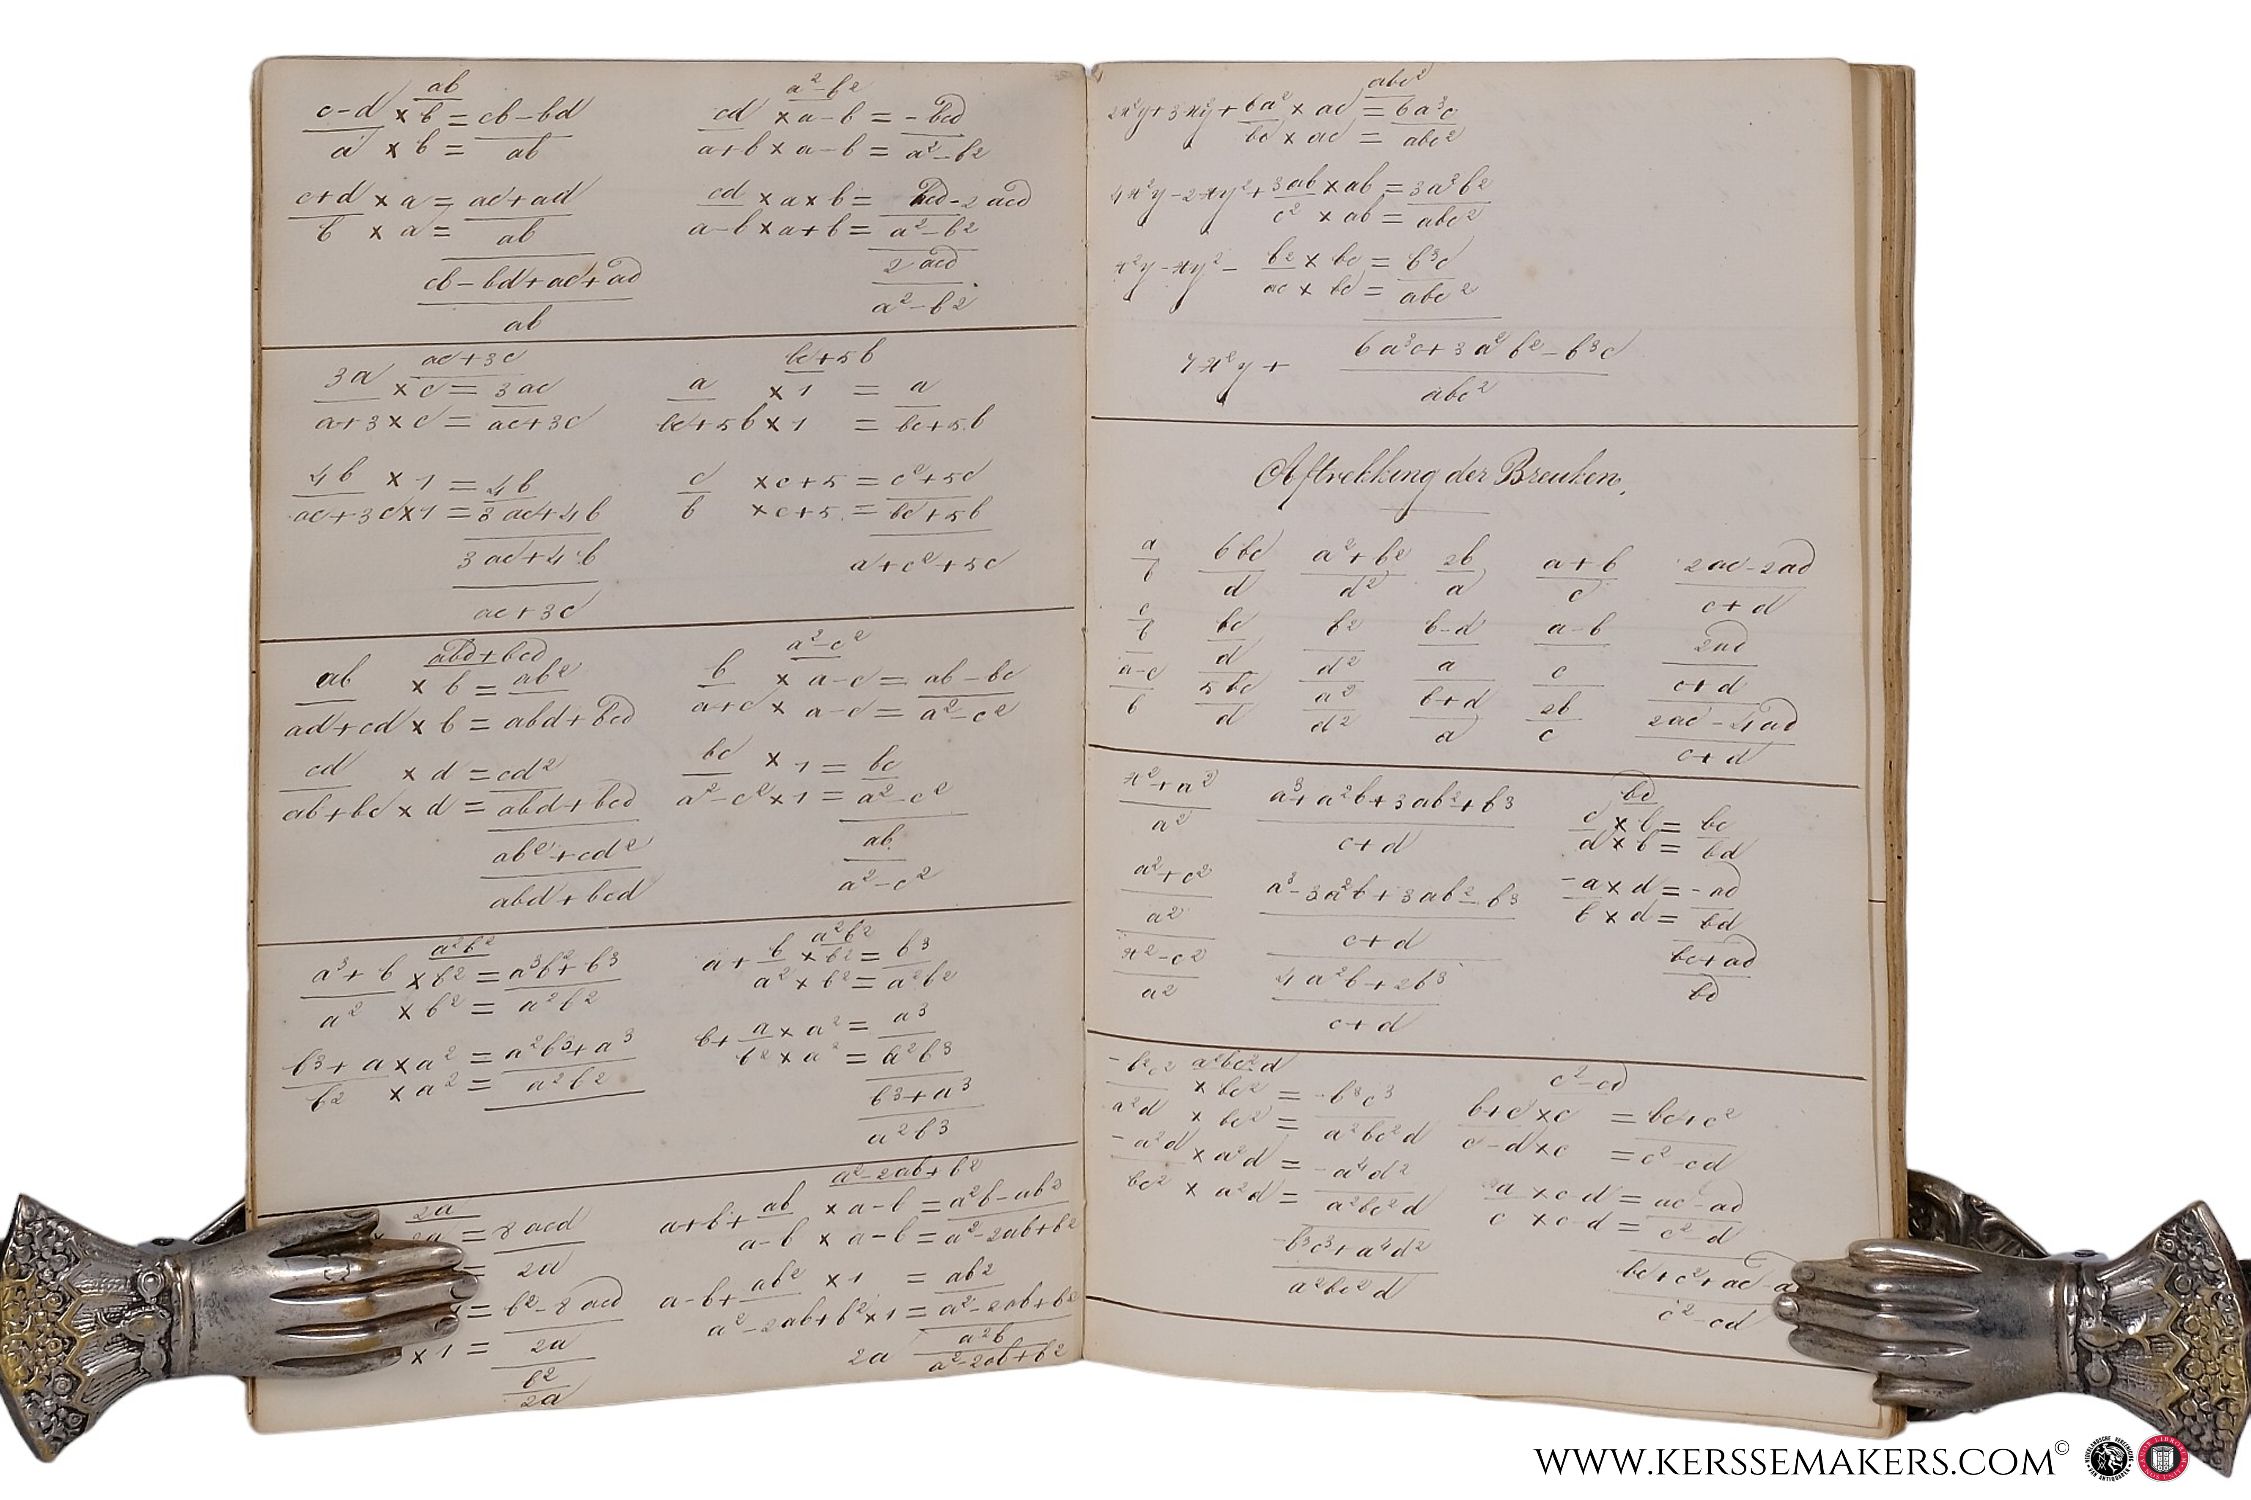 ab
c-d × b = cb-bd
a × b = ab
c+d × a = ac+ad
b × a = ab
cb-bd+ac+ad
ab
a²-b²
cd × a-b = -bcd
a+b × a-b = a²-b²
cd × a×b = bcd-2acd
a-b × a+b = a²-b²
2acd
a²-b²
ac+3c
3a × c = 3ac
a+3 × c = ac+3c
4b × 1 = 4b
ac+3c × 1 = 3ac+4b
3ac+4b
ac+3c
bc+5b
a × 1 = a
bc+5b × 1 = bc+5b
c × c+5 = c²+5c
b × c+5 = bc+5b
a+c²+5c
abd+bcd
ab × b = ab²
ad+cd × b = abd+bcd
cd × d = cd²
ab+bc × d = abd+bcd
ab²+cd²
abd+bcd
a²-c²
b × a-c = ab-bc
a+c × a-c = a²-c²
bc × 1 = bc
a²-c² × 1 = a²-c²
ab
a²-c²
a²b²
a³+b × b² = a³b²+b³
a² × b² = a²b²
b³+a × a² = a²b³+a³
b² × a² = a²b²
a²b²
a+b × b² = b³
a² × b² = a²b²
b+a × a² = a³
b² × a² = a²b³
b³+a³
a²b³
2a
2a = 8acd
= 2a
= b²-8acd
× 1 = 2a
b²
2a
a²-2ab+b²
a+b+ab × a-b = a²b-ab²
a-b × a-b = a²-2ab+b²
a-b+ab² × 1 = ab²
a²-2ab+b² × 1 = a²-2ab+b²
2a a²b
a²-2ab+b²
abc²
2x²y+3xy²+6a² × ac = 6a³c
bc × ac = abc²
4x²y-2xy²+3ab × ab = 3a²b²
c² × ab = abc²
x²y-xy²- b² × bc = b³c
ac × bc = abc²
7x²y+ 6a³c+3a²b²-b³c
abc²
Aftrekking der Breuken.
a 6bc a²+b² 2b a+b 2ac-2ad
b d d² a c c+d
c bc b² b-d a-b 2ad
b d d² a c c+d
a-c 5bc a² b+d 2b 2ac-4ad
b d d² a c c+d
x²+a²
a²
a²+c²
a²
x²-c²
a²
a³+a²b+3ab²+b³
c+d
a³-3a²b+3ab²-b³
c+d
4a²b+2b³
c+d
bd
c × b = bc
d × b = bd
-a × d = -ad
b × d = bd
bc+ad
bd
a²bc²d
-b²c² × bc² = -b³c³
a²d × bc² = a²bc²d
-a²d × a²d = -a⁴d²
bc² × a²d = a²bc²d
-b³c³+a⁴d²
a²bc²d
c²-cd
b+c × c = bc+c²
c-d × c = c²-cd
a × c-d = ac-ad
c × c-d = c²-d
bc+c²+ac-a
c²-cd
WWW.KERSSEMAKERS.COM©